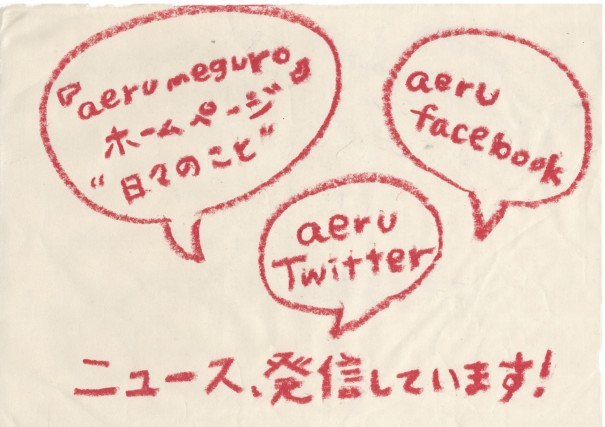 『aeru meguro』
ホームページ
“日々のこと”
aeru
facebook
aeru
Twitter
ニュース、発信しています!